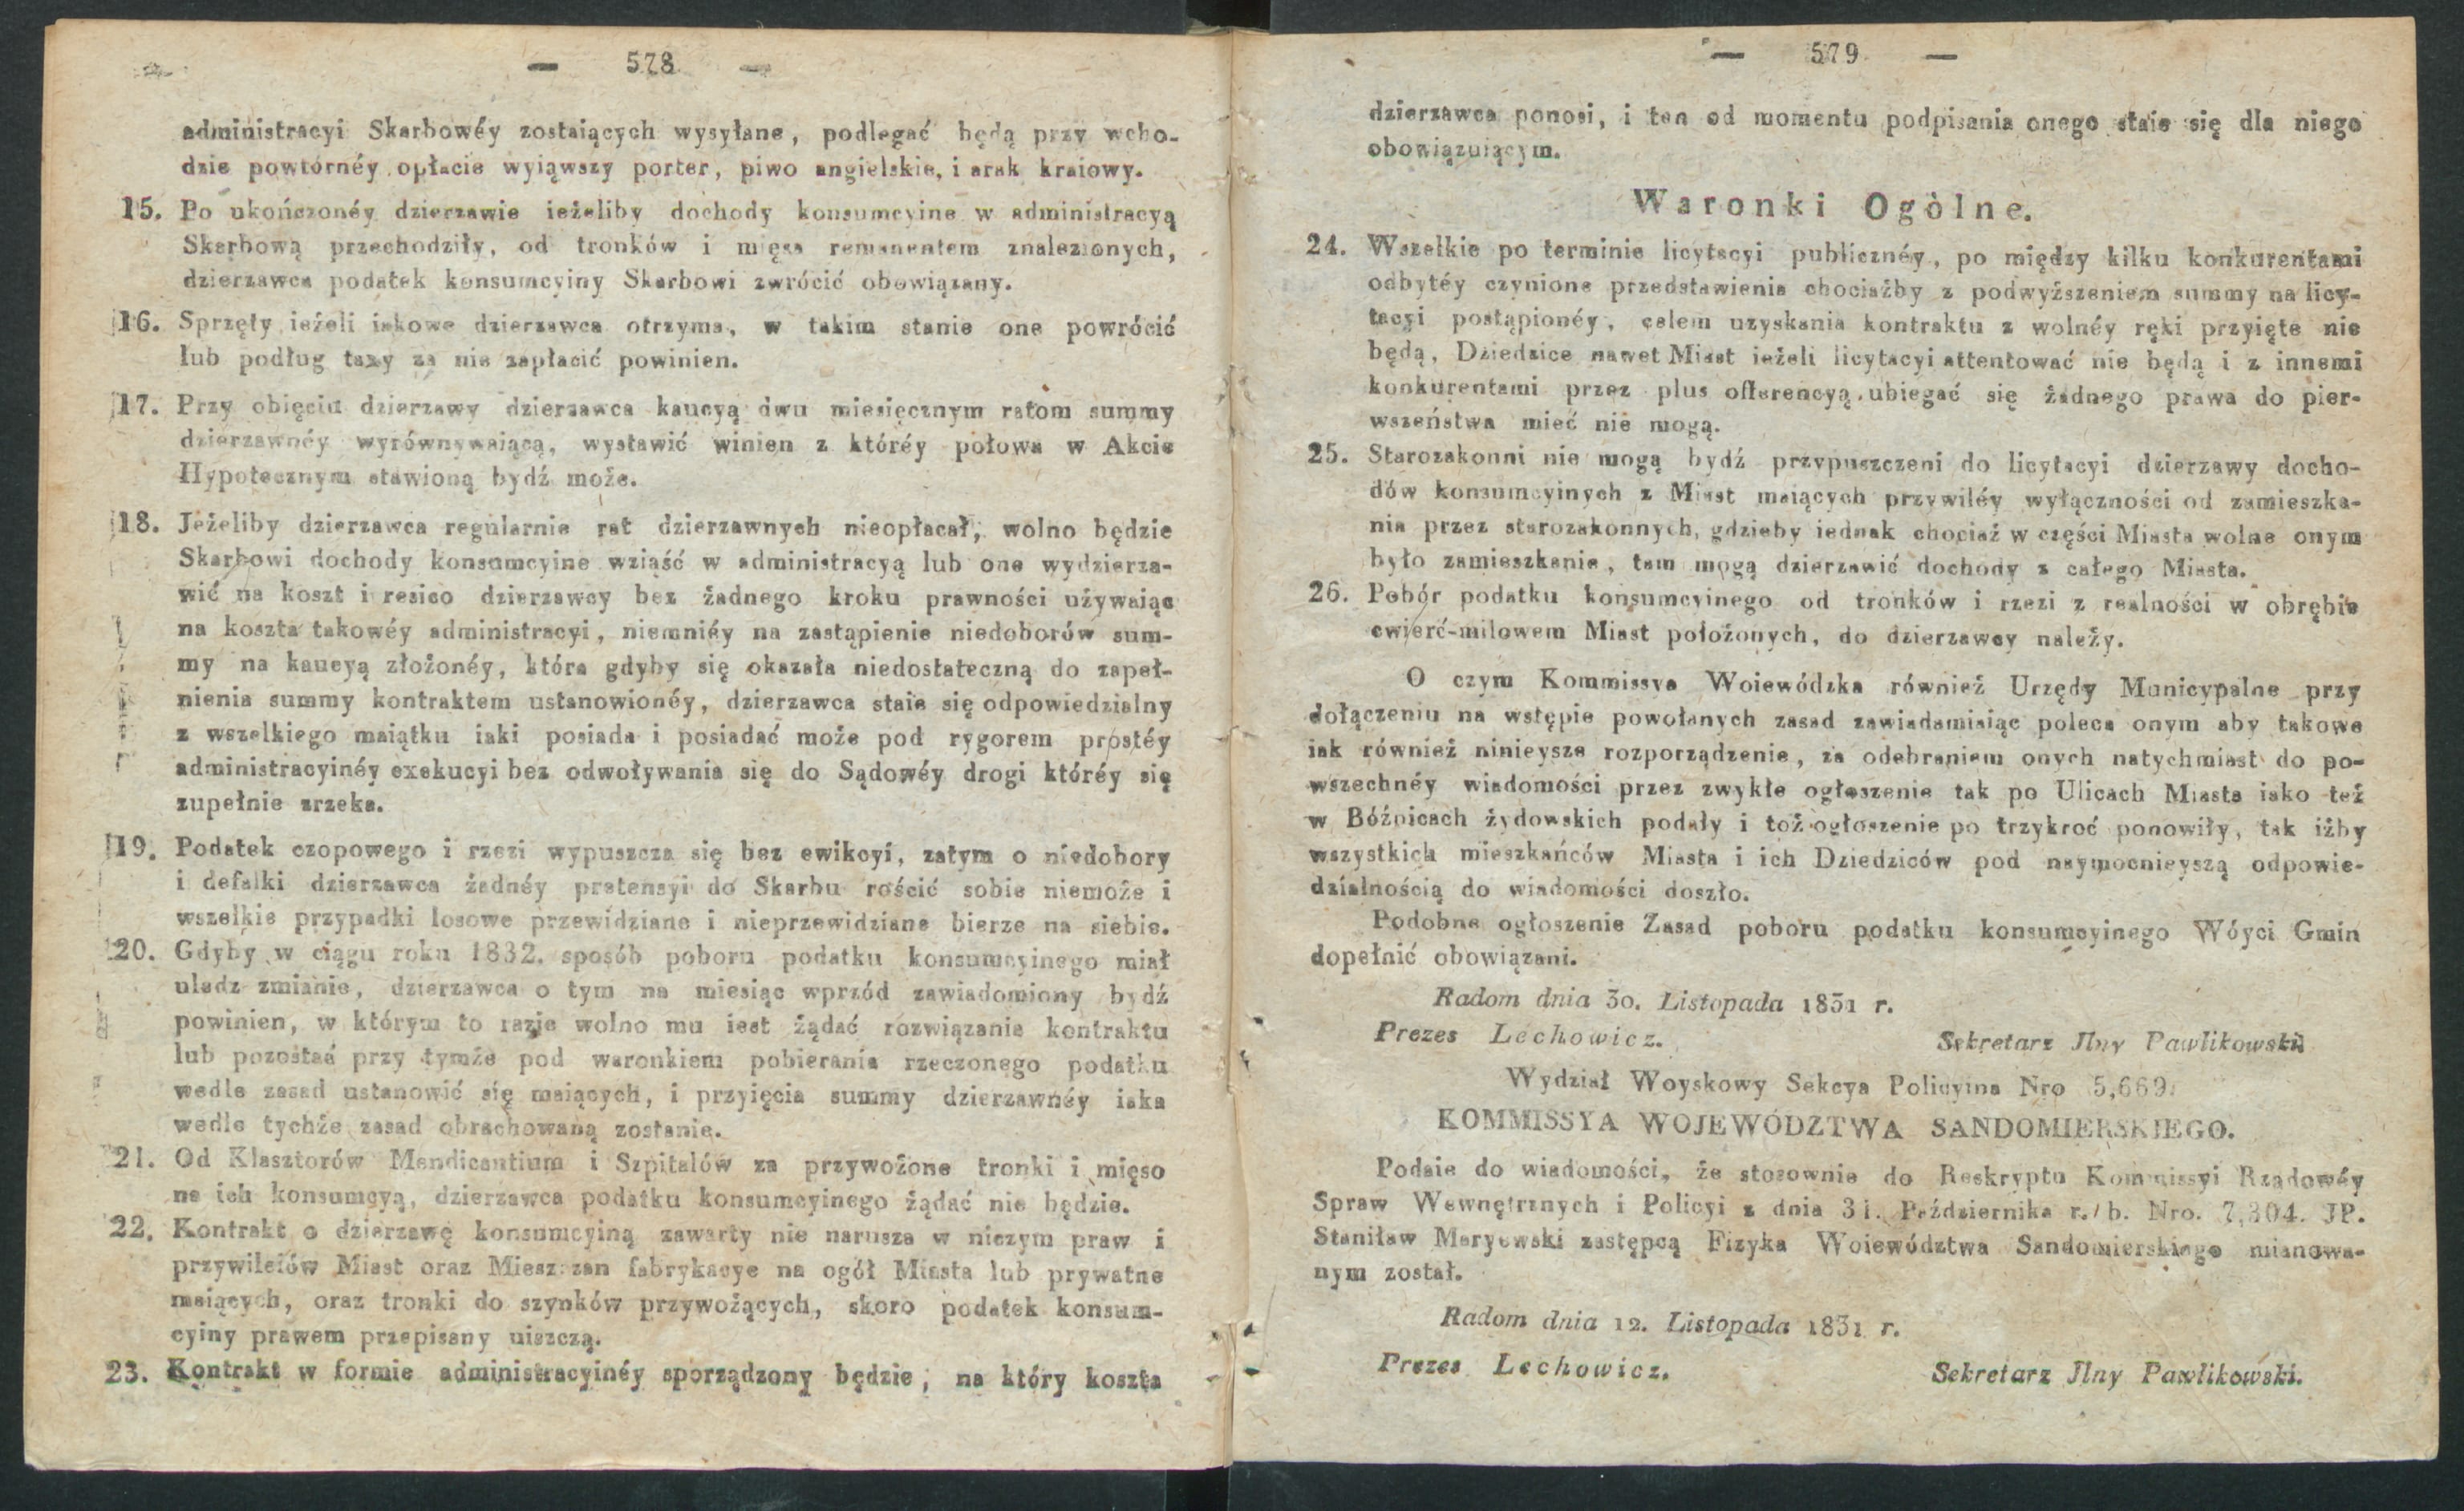 — 578 —
administracyi Skarbowéy zostaiących wysyłane, podlegać będą przy wcho-
dzie powtórnéy opłacie wyiąwszy porter, piwo angielskie, i arak kraiowy.
15. Po ukończonéy dzierzawie ieżeliby dochody konsumcyine w administracyą
Skarbową przechodziły, od tronków i mięsa remanentem znalezionych,
dzierzawca podatek konsumcyiny Skarbowi zwrócić obowiązany.
16. Sprzęty ieżeli iakowe dzierzawca otrzyma, w takim stanie one powrócić
lub podług taxy za nie zapłacić powinien.
17. Przy obięciu dzierzawy dzierzawca kaucyą dwu miesięcznym ratom summy
dzierzawnéy wyrównywaiącą, wystawić winien z któréy połowa w Akcie
Hypotecznym stawioną bydź może.
18. Jeżeliby dzierzawca regularnie rat dzierzawnych nieopłacał, wolno będzie
Skarbowi dochody konsumcyine wziąść w administracyą lub one wydzierza-
wić na koszt i resico dzierzawcy bez żadnego kroku prawności używaiąc
na koszta takowéy administracyi, niemniéy na zastąpienie niedoborów sum-
my na kaucyą złożonéy, która gdyby się okazała niedostateczną do zapeł-
nienia summy kontraktem ustanowionéy, dzierzawca staie się odpowiedzialny
z wszelkiego maiątku iaki posiada i posiadać może pod rygorem prostéy
administracyinéy exekucyi bez odwoływania się do Sądowéy drogi któréy się
zupełnie zrzeka.
19. Podatek czopowego i rzezi wypuszcza się bez ewikcyi, zatym o niedobory
i defalki dzierzawca żadnéy pretensyi do Skarbu rościć sobie niemoże i
wszelkie przypadki losowe przewidziane i nieprzewidziane bierze na siebie.
20. Gdyby w ciągu roku 1832. sposób poboru podatku konsumcyinego miał
uledz zmianie, dzierzawca o tym na miesiąc wprzód zawiadomiony bydź
powinien, w którym to razie wolno mu iest żądać rozwiązania kontraktu
lub pozostać przy tymże pod waronkiem pobierania rzeczonego podatku
wedle zasad ustanowić się maiących, i przyięcia summy dzierzawnéy iaka
wedle tychże zasad obrachowaną zostanie.
21. Od Klasztorów Mendicantium i Szpitalów za przywożone tronki i mięso
na ich konsumcyą, dzierzawca podatku konsumcyinego żądać nie będzie.
22. Kontrakt o dzierzawę konsumcyiną zawarty nie narusza w niczym praw i
przywileiów Miast oraz Mieszczan fabrykacye na ogół Miasta lub prywatne
maiących, oraz tronki do szynków przywożących, skoro podatek konsum-
cyiny prawem przepisany uiszczą.
23. Kontrakt w formie administracyinéy sporządzony będzie, na który koszta
— 579 —
dzierzawca ponosi, i ten od momentu podpisania onego staie się dla niego
obowiązuiącym.
Waronki Ogòlne.
24. Wszelkie po terminie licytacyi publicznéy, po między kilku konkurentami
odbytéy czynione przedstawienia chociażby z podwyższeniem summy na licy-
tacyi postąpionéy, celem uzyskania kontraktu z wolnéy ręki przyięte nie
będą, Dziedzice nawet Miast ieżeli licytacyi attentować nie będą i z innemi
konkurentami przez plus offerencyą ubiegać się żadnego prawa do pier-
wszeństwa mieć nie mogą.
25. Starozakonni nie mogą bydź przypuszczeni do licytacyi dzierzawy docho-
dów konsumcyinych z Miast maiących przywiléy wyłączności od zamieszka-
nia przez starozakonnych, gdzieby iednak chociaż w części Miasta wolne onym
było zamieszkanie, tam mogą dzierzawić dochody z całego Miasta.
26. Pobór podatku konsumcyinego od tronków i rzezi z realności w obrębie
cwierć-milowem Miast położonych, do dzierzawcy należy.
O czym Kommissya Woiewódzka również Urzędy Municypalne przy
dołączeniu na wstępie powołanych zasad zawiadamiaiąc poleca onym aby takowe
iak również ninieysze rozporządzenie, za odebraniem onych natychmiast do po-
wszechnéy wiadomości przez zwykłe ogłoszenie tak po Ulicach Miasta iako też
w Bóźnicach żydowskich podały i toż ogłoszenie po trzykroć ponowiły, tak iżby
wszystkich mieszkańców Miasta i ich Dziedziców pod naymocnieyszą odpowie-
dzialnością do wiadomości doszło.
Podobne ogłoszenie Zasad poboru podatku konsumcyinego Wóyci Gmin
dopełnić obowiązani.
Radom dnia 30. Listopada 1831 r.
Prezes Lechowicz.
Sekretarz Jlny Pawlikowski
Wydział Woyskowy Sekcya Policyina Nro 5,669.
KOMMISSYA WOJEWÓDZTWA SANDOMIERSKIEGO.
Podaie do wiadomości, że stosownie do Reskryptu Kommissyi Rządowéy
Spraw Wewnętrznych i Policyi z dnia 31. Października r. b. Nro. 7,304. JP.
Staniław Maryewski zastępcą Fizyka Woiewództwa Sandomierskiego mianowa-
nym został.
Radom dnia 12. Listopada 1831 r.
Prezes Lechowicz.
Sekretarz Jlny Pawlikowski.